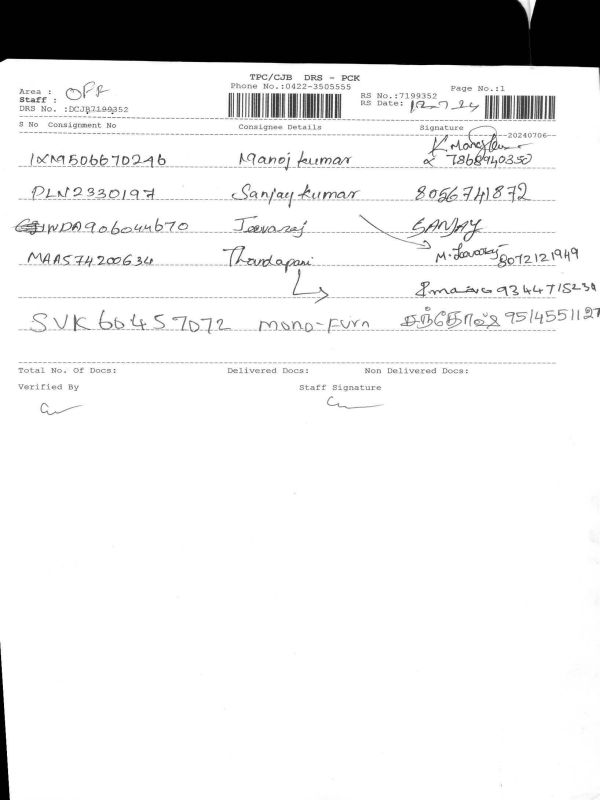 TPC/CJB DRS - PCK
Area : OFF
Phone No.:0422-3505555
Page No.:1
Staff :
RS No.:7199352
DRS No. :DCJB7199352
RS Date: 12.7.24
S No Consignment No Consignee Details Signature
20240706
IXM9506670246 Manoj kumar 7868940350
PLN2330197 Sanjay kumar 8056741872
WDA906044670 Jeevaraj SANJAY
MAA574200634 Thandapani M. Jeevaraj 8072121949
9344715234
SVK604457072 mono-Furn சந்தோஷ் 9514551127
Total No. Of Docs: Delivered Docs: Non Delivered Docs:
Verified By Staff Signature